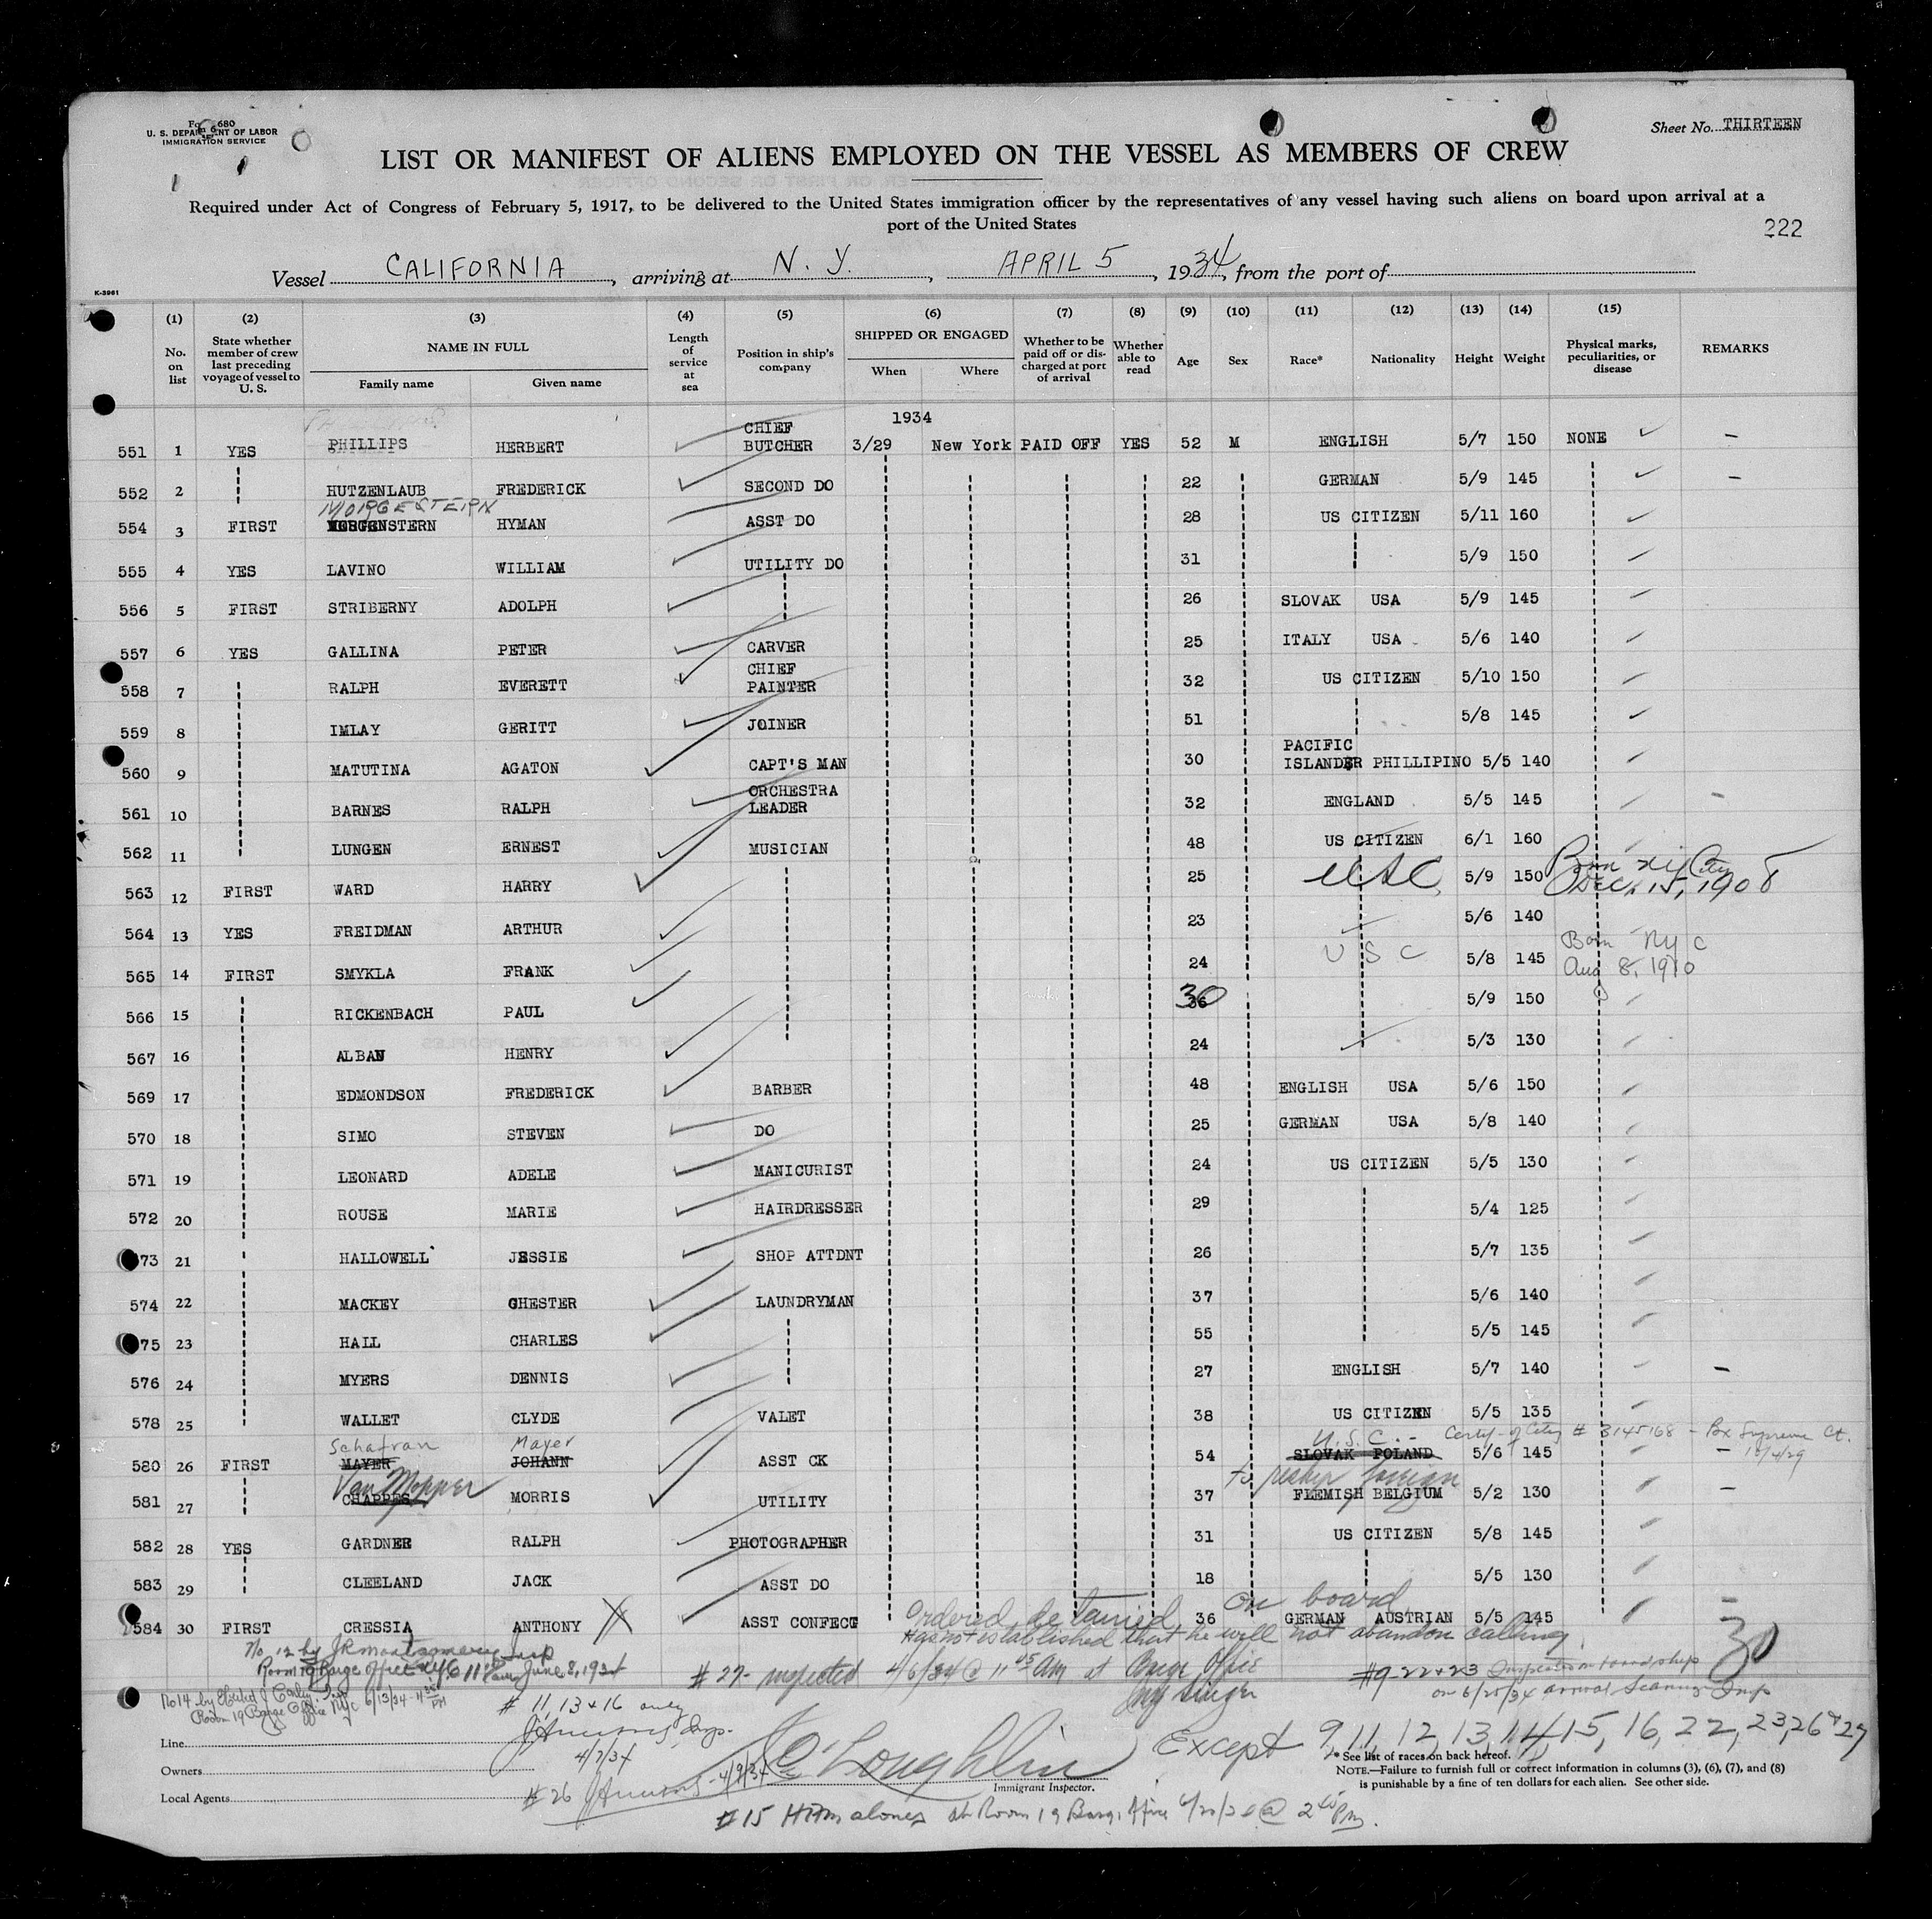 Form 680
U. S. DEPARTMENT OF LABOR
IMMIGRATION SERVICE
Sheet No. THIRTEEN
LIST OR MANIFEST OF ALIENS EMPLOYED ON THE VESSEL AS MEMBERS OF CREW
Required under Act of Congress of February 5, 1917, to be delivered to the United States immigration officer by the representatives of any vessel having such aliens on board upon arrival at a
port of the United States
222
Vessel CALIFORNIA, arriving at N. Y., APRIL 5, 1934, from the port of
K-3961
(1) (2) (3) (4) (5) (6) (7) (8) (9) (10) (11) (12) (13) (14) (15)
No. on list State whether member of crew last preceding voyage of vessel to U. S. NAME IN FULL Family name Given name Length of service at sea Position in ship's company SHIPPED OR ENGAGED When Where Whether to be paid off or discharged at port of arrival Whether able to read Age Sex Race* Nationality Height Weight Physical marks, peculiarities, or disease REMARKS
1934
551 1 YES PHILLIPS HERBERT CHIEF BUTCHER 3/29 New York PAID OFF YES 52 M ENGLISH 5/7 150 NONE –
552 2 HUTZENLAUB FREDERICK SECOND DO 22 GERMAN 5/9 145 –
MORGESTERN
554 3 FIRST MORGENSTERN HYMAN ASST DO 28 US CITIZEN 5/11 160
555 4 YES LAVINO WILLIAM UTILITY DO 31 5/9 150
556 5 FIRST STRIBERNY ADOLPH 26 SLOVAK USA 5/9 145
557 6 YES GALLINA PETER CARVER 25 ITALY USA 5/6 140
558 7 RALPH EVERETT CHIEF PAINTER 32 US CITIZEN 5/10 150
559 8 IMLAY GERITT JOINER 51 5/8 145
560 9 MATUTINA AGATON CAPT'S MAN 30 PACIFIC ISLANDER PHILLIPINO 5/5 140
561 10 BARNES RALPH ORCHESTRA LEADER 32 ENGLAND 5/5 145 –
562 11 LUNGEN ERNEST MUSICIAN 48 US CITIZEN 6/1 160
563 12 FIRST WARD HARRY 25 USC 5/9 150 Born City Dec. 15, 1908
564 13 YES FREIDMAN ARTHUR 23 5/6 140
565 14 FIRST SMYKLA FRANK 24 U S C 5/8 145 Born NYC Aug 8, 1910
566 15 RICKENBACH PAUL 30 36 5/9 150
567 16 ALBAN HENRY 24 5/3 130
569 17 EDMONDSON FREDERICK BARBER 48 ENGLISH USA 5/6 150
570 18 SIMO STEVEN DO 25 GERMAN USA 5/8 140
571 19 LEONARD ADELE MANICURIST 24 US CITIZEN 5/5 130
572 20 ROUSE MARIE HAIRDRESSER 29 5/4 125
573 21 HALLOWELL JESSIE SHOP ATTDNT 26 5/7 135
574 22 MACKEY CHESTER LAUNDRYMAN 37 5/6 140
575 23 HALL CHARLES 55 5/5 145
576 24 MYERS DENNIS 27 ENGLISH 5/7 140 –
578 25 WALLET CLYDE VALET 38 US CITIZEN 5/5 135
Schafran Mayer U.S.C. - Certf. of City # 3145168 - Bx Supreme Ct.
580 26 FIRST MAYER JOHANN ASST CK 54 SLOVAK POLAND 5/6 145 –
Van Mopper to reship foreign
581 27 CHAPPES MORRIS UTILITY 37 FLEMISH BELGIUM 5/2 130 –
582 28 YES GARDNER RALPH PHOTOGRAPHER 31 US CITIZEN 5/8 145
583 29 CLEELAND JACK ASST DO 18 5/5 130
Ordered detained on board
584 30 FIRST CRESSIA ANTHONY X ASST CONFECT 36 GERMAN AUSTRIAN 5/5 145 –
Has not established that he will not abandon calling
30
No 12 by J R Montgomery Insp
Room 19 Barge Office NYC 11 am June 8, 1934
# 27 - inspected 4/6/34 @ 11 45 AM at Barge Office
Insp Singer
#9-22+23 Inspected on board ship
on 6/25/34 arrival Insp
No 14 by
Room 19 Barge Office NYC 6/13/34
# 11, 13 + 16 only
Insp.
4/7/34
O'Loughlin
Except 9, 11, 12, 13, 14, 15, 16, 22, 23, 26 + 27
Line
Owners
Local Agents
# 26 4/9/34
Immigrant Inspector.
* See list of races on back hereof.
NOTE.—Failure to furnish full or correct information in columns (3), (6), (7), and (8)
is punishable by a fine of ten dollars for each alien. See other side.
# 15 alones at Room 19 Barge Office @ 2 PM.